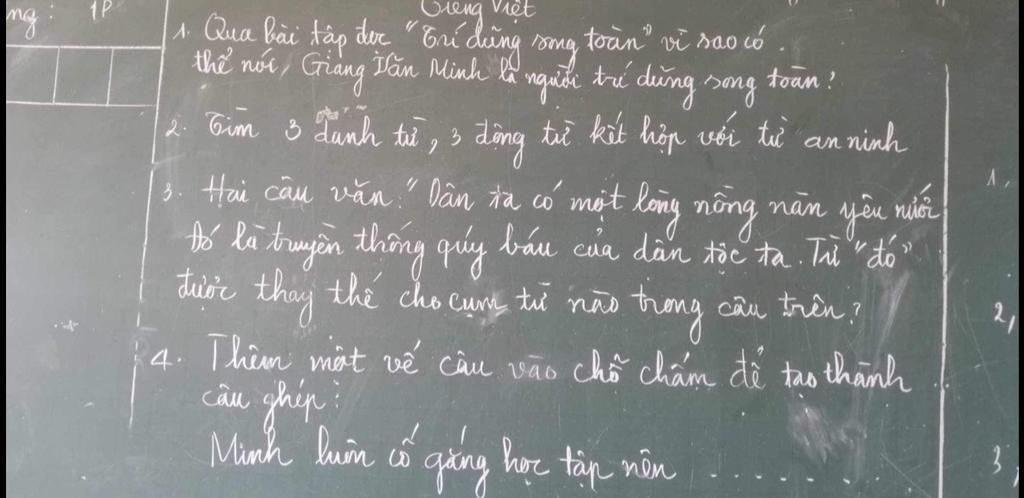 ng: 1P
Tiếng Việt
1. Qua bài tập đọc "Trí dũng song toàn" vì sao có
thể nói, Giang Văn Minh là người trí dũng song toàn?
2. Tìm 3 danh từ, 3 động từ kết hợp với từ an ninh
3. Hai câu văn: "Dân ta có một lòng nồng nàn yêu nước
Đó là truyền thống quý báu của dân tộc ta. Từ "đó"
được thay thế cho cụm từ nào trong câu trên?
4. Thêm một vế câu vào chỗ chấm để tạo thành
câu ghép:
Minh luôn cố gắng học tập nên ........
1,
2,
3,